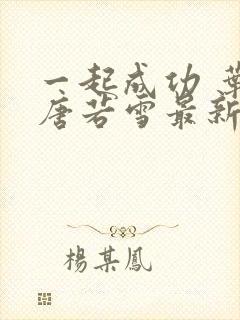 一起成功 葉
唐若雪最新
楊某鳳